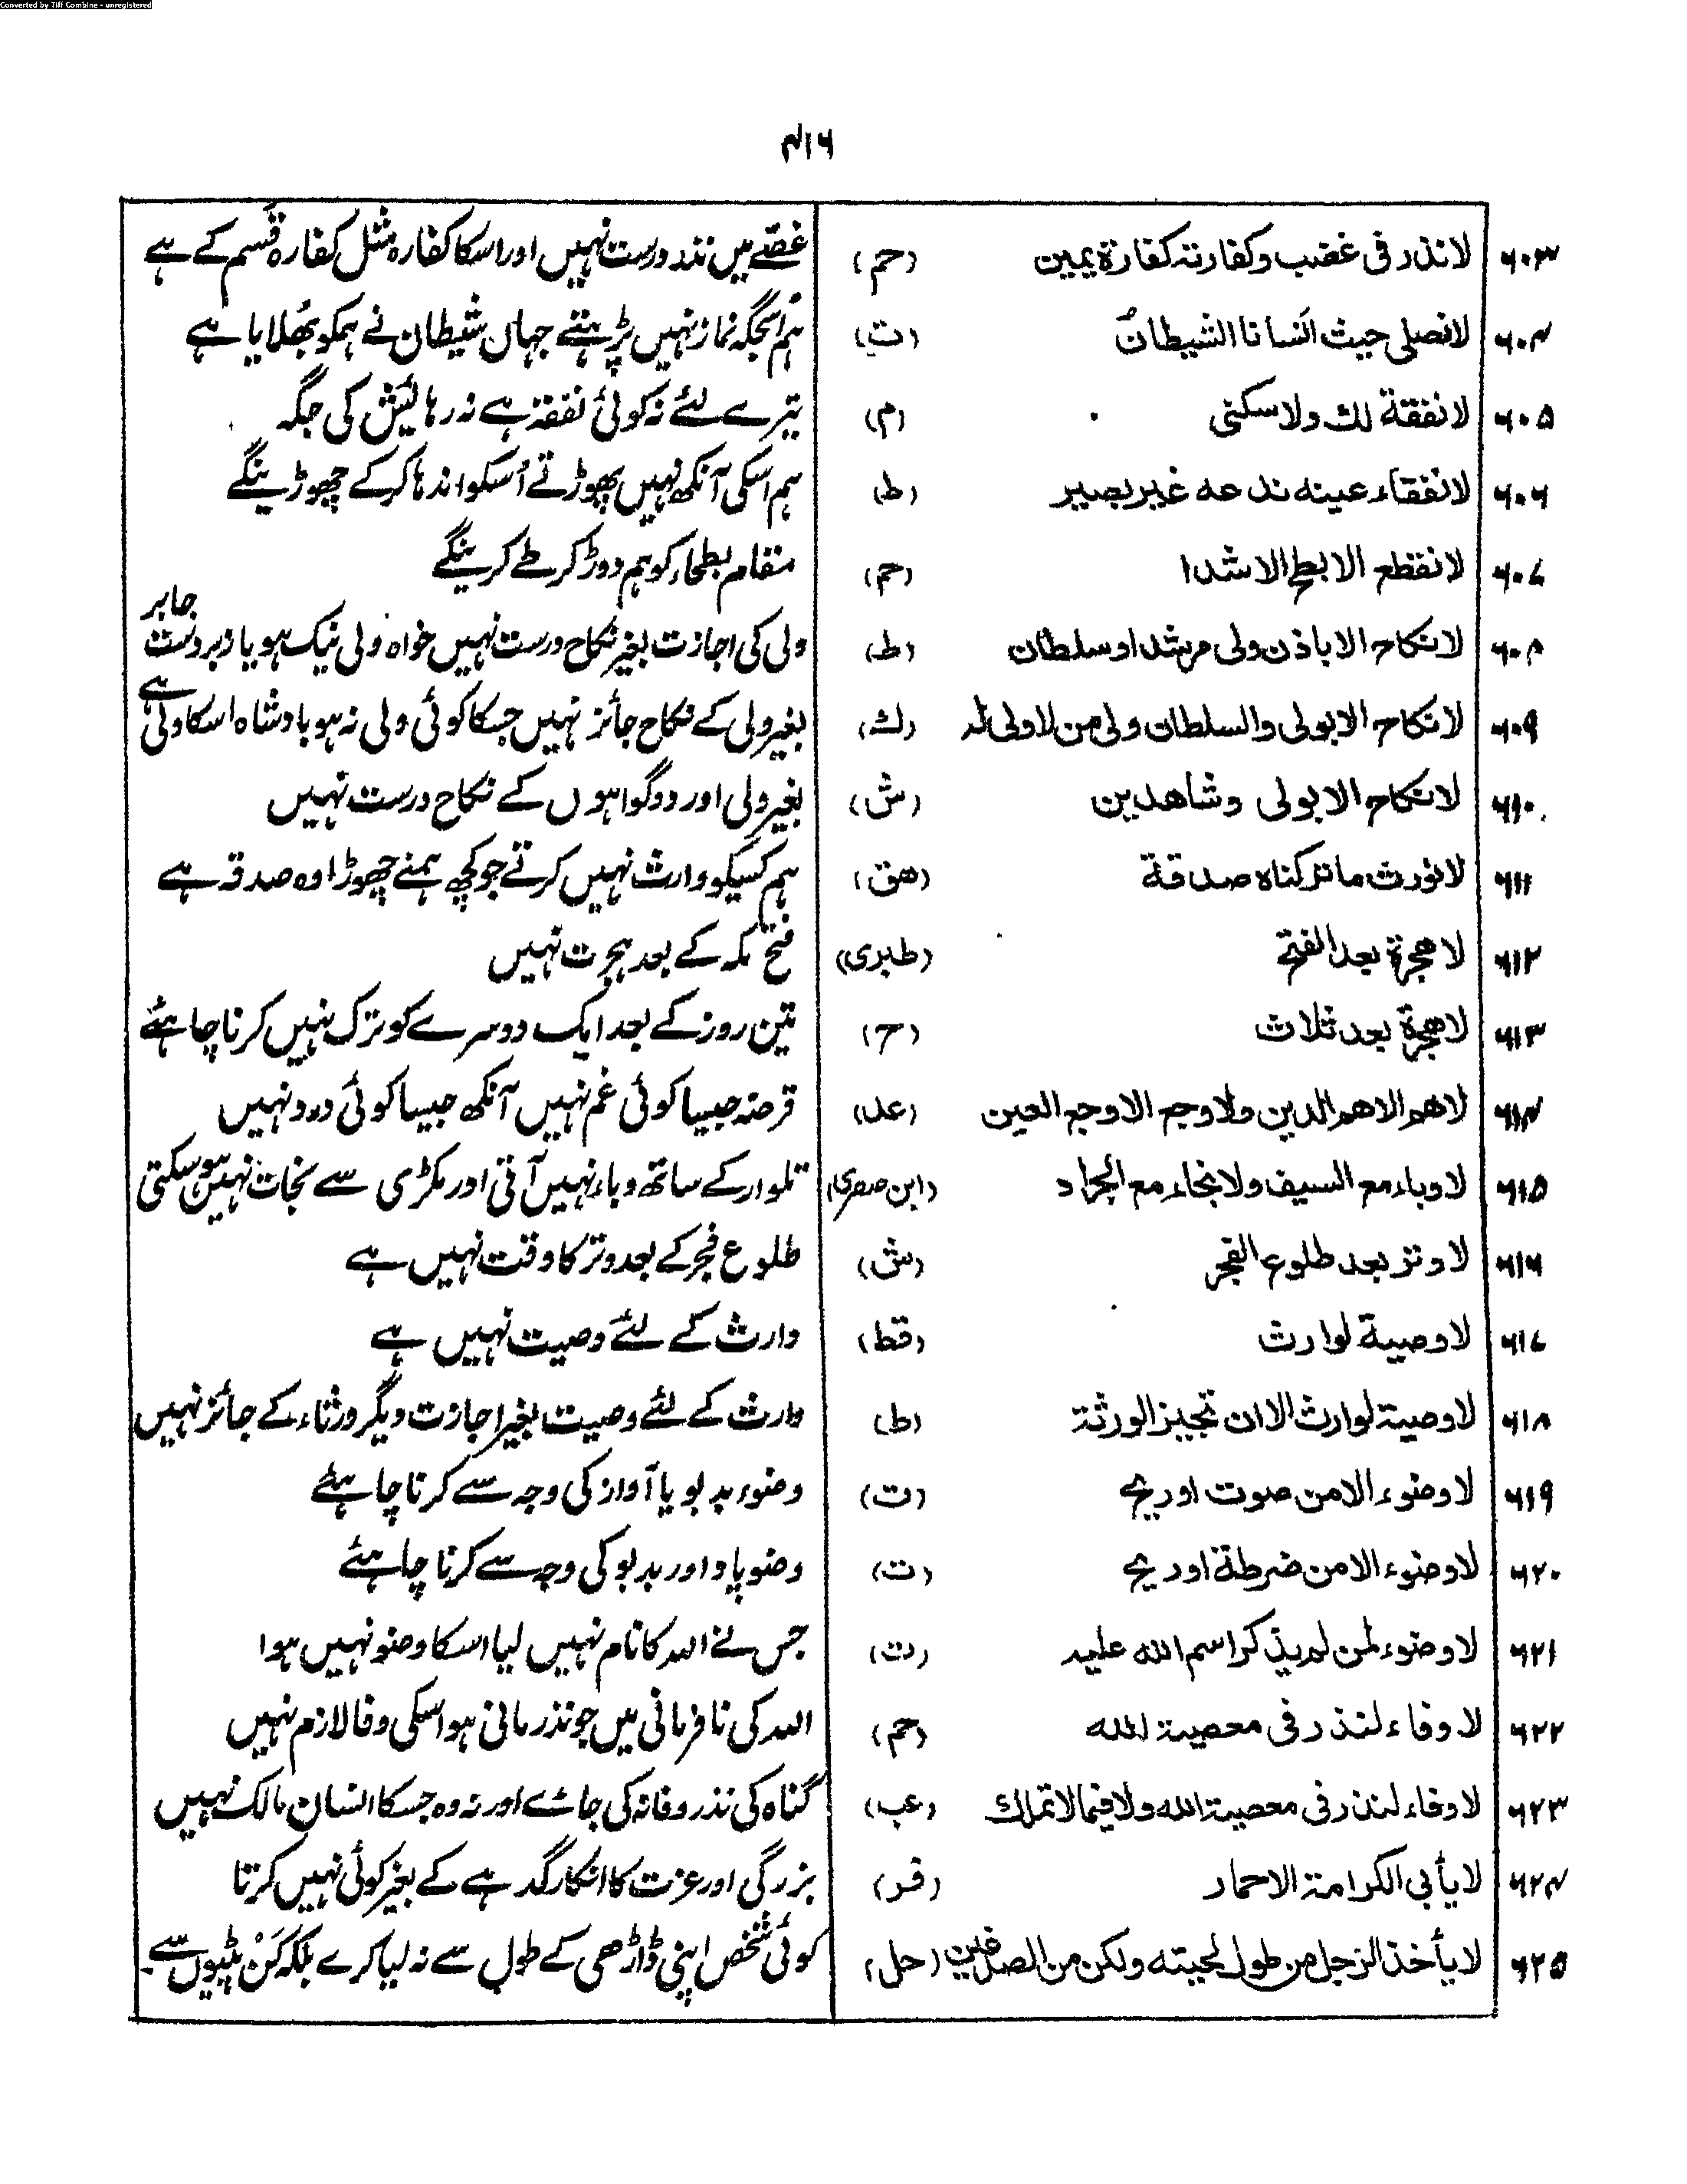 Converted by Tiff Combine - unregistered
۴۱۶
۶۰۳ لا نذر فی غضب وکفارتہ کفارة یمین (حم) غصّے میں نذر درست نہیں اور اسکا کفارہ مثل کفارہ قسم کے ہے
۶۰۴ لا نصلی حیث انسانا الشیطان (ت) ہم اُسجگہ نماز نہیں پڑہتے جہاں شیطان نے ہمکو بھُلایا ہے
۶۰۵ لا نفقة لك ولا سکنی (م) تیرے لئے نہ کوئی نفقہ ہے نہ رہائیش کی جگہ
۶۰۶ لا نفقاء عینه ندعه غیر بصیر (ط) ہم اسکی آنکھ نہیں پھوڑتے اُسکو اندہا کرکے چھوڑینگے
۶۰۷ لا نقطع الابطح الا شدا (حم) مقام بطحاء کو ہم دوڑ کر طے کرینگے
۶۰۸ لا نکاح الا باذن ولی مرشد او سلطان (ط) ولی کی اجازت بغیر نکاح درست نہیں خواہ ولی نیک ہو یا زبردست جابر
۶۰۹ لا نکاح الا بولی والسلطان ولی من لا ولی لہ (ك) بغیر ولی کے نکاح جائز نہیں جسکا کوئی ولی نہ ہو بادشاہ اسکا ولی ہے
۶۱۰ لا نکاح الا بولی وشاهدین (ش) بغیر ولی اور دو گواہوں کے نکاح درست نہیں
۶۱۱ لا نورث ما ترکناه صدقة (هق) ہم کسیکو وارث نہیں کرتے جو کچھ ہمنے چھوڑا وہ صدقہ ہے
۶۱۲ لا هجرة بعد الفتح (طبری) فتح مکہ کے بعد ہجرت نہیں
۶۱۳ لا هجرة بعد ثلاث (ح) تین روز کے بعد ایک دوسرے کو ترک نہیں کرنا چاہئے
۶۱۴ لا هم الا هم الدین ولا وجع الا وجع العین (عد) قرضہ جیسا کوئی غم نہیں آنکھ جیسا کوئی درد نہیں
۶۱۵ لا وباء مع السیف ولا نجاء مع الجراد (ابن صصری) تلوار کے ساتھ وباء نہیں آتی اور مکڑی سے نجات نہیں ہو سکتی
۶۱۶ لا وتر بعد طلوع الفجر (ش) طلوع فجر کے بعد وتر کا وقت نہیں ہے
۶۱۷ لا وصیة لوارث (قط) وارث کے لئے وصیت نہیں ہے
۶۱۸ لا وصیة لوارث الا ان تجیز الورثة (ط) وارث کے لئے وصیت بغیر اجازت دیگر ورثاء کے جائز نہیں
۶۱۹ لا وضوء الا من صوت او ریح (ت) وضوء بدبو یا آواز کی وجہ سے کرنا چاہئے
۶۲۰ لا وضوء الا من ضرطة او ریح (ت) وضو پاد اور بدبو کی وجہ سے کرنا چاہئے
۶۲۱ لا وضوء لمن لم یذکر اسم الله علیہ (ت) جس نے اللہ کا نام نہیں لیا اسکا وضو نہیں ہوا
۶۲۲ لا وفاء لنذر فی معصیة الله (حم) اللہ کی نافرمانی میں جو نذر مانی ہو اسکی وفا لازم نہیں
۶۲۳ لا وفاء لنذر فی معصیة الله ولا فیما لا تملك (عب) گناہ کی نذر وفا نہ کی جائے اور نہ وہ جسکا انسان مالک نہیں
۶۲۴ لا یأبی الکرامة الا حمار (فر) بزرگی اور عزت کا انکار گدہے کے بغیر کوئی نہیں کرتا
۶۲۵ لا یأخذ الرجل من طول لحیته ولکن من الصدغین (حل) کوئی شخص اپنی ڈاڑھی کے طول سے نہ لیا کرے بلکہ کَن پٹیوں سے۔